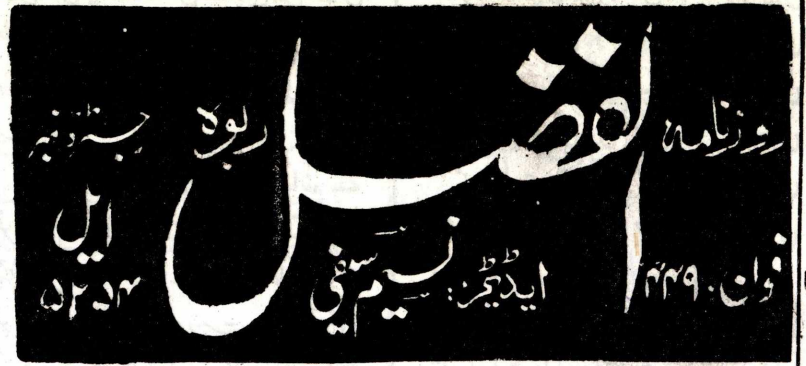 روزنامہ الفضل ربوہ
رجسٹرڈ نمبر
ایل
۵۲۵۴
ایڈیٹر: نسیم سیفی
فون۔ ۴۴۹